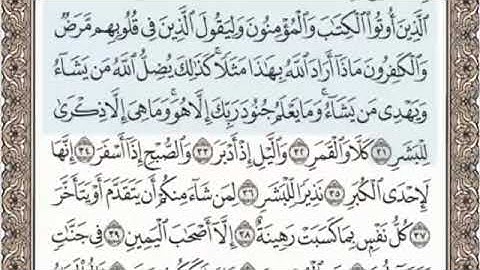 الَّذِينَ أُوتُوا الْكِتَٰبَ وَالْمُؤْمِنُونَ وَلِيَقُولَ الَّذِينَ فِى قُلُوبِهِم مَّرَضٌ
وَالْكَٰفِرُونَ مَاذَآ أَرَادَ اللَّهُ بِهَٰذَا مَثَلًا ۚ كَذَٰلِكَ يُضِلُّ اللَّهُ مَن يَشَآءُ
وَيَهْدِى مَن يَشَآءُ ۚ وَمَا يَعْلَمُ جُنُودَ رَبِّكَ إِلَّا هُوَ ۚ وَمَا هِىَ إِلَّا ذِكْرَىٰ
لِلْبَشَرِ ٣١ كَلَّا وَالْقَمَرِ ٣٢ وَالَّيْلِ إِذْ أَدْبَرَ ٣٣ وَالصُّبْحِ إِذَآ أَسْفَرَ ٣٤ إِنَّهَا
لَإِحْدَى الْكُبَرِ ٣٥ نَذِيرًا لِّلْبَشَرِ ٣٦ لِمَن شَآءَ مِنكُمْ أَن يَتَقَدَّمَ أَوْ يَتَأَخَّرَ
٣٧ كُلُّ نَفْسٍۭ بِمَا كَسَبَتْ رَهِينَةٌ ٣٨ إِلَّآ أَصْحَٰبَ الْيَمِينِ ٣٩ فِى جَنَّٰتٍ